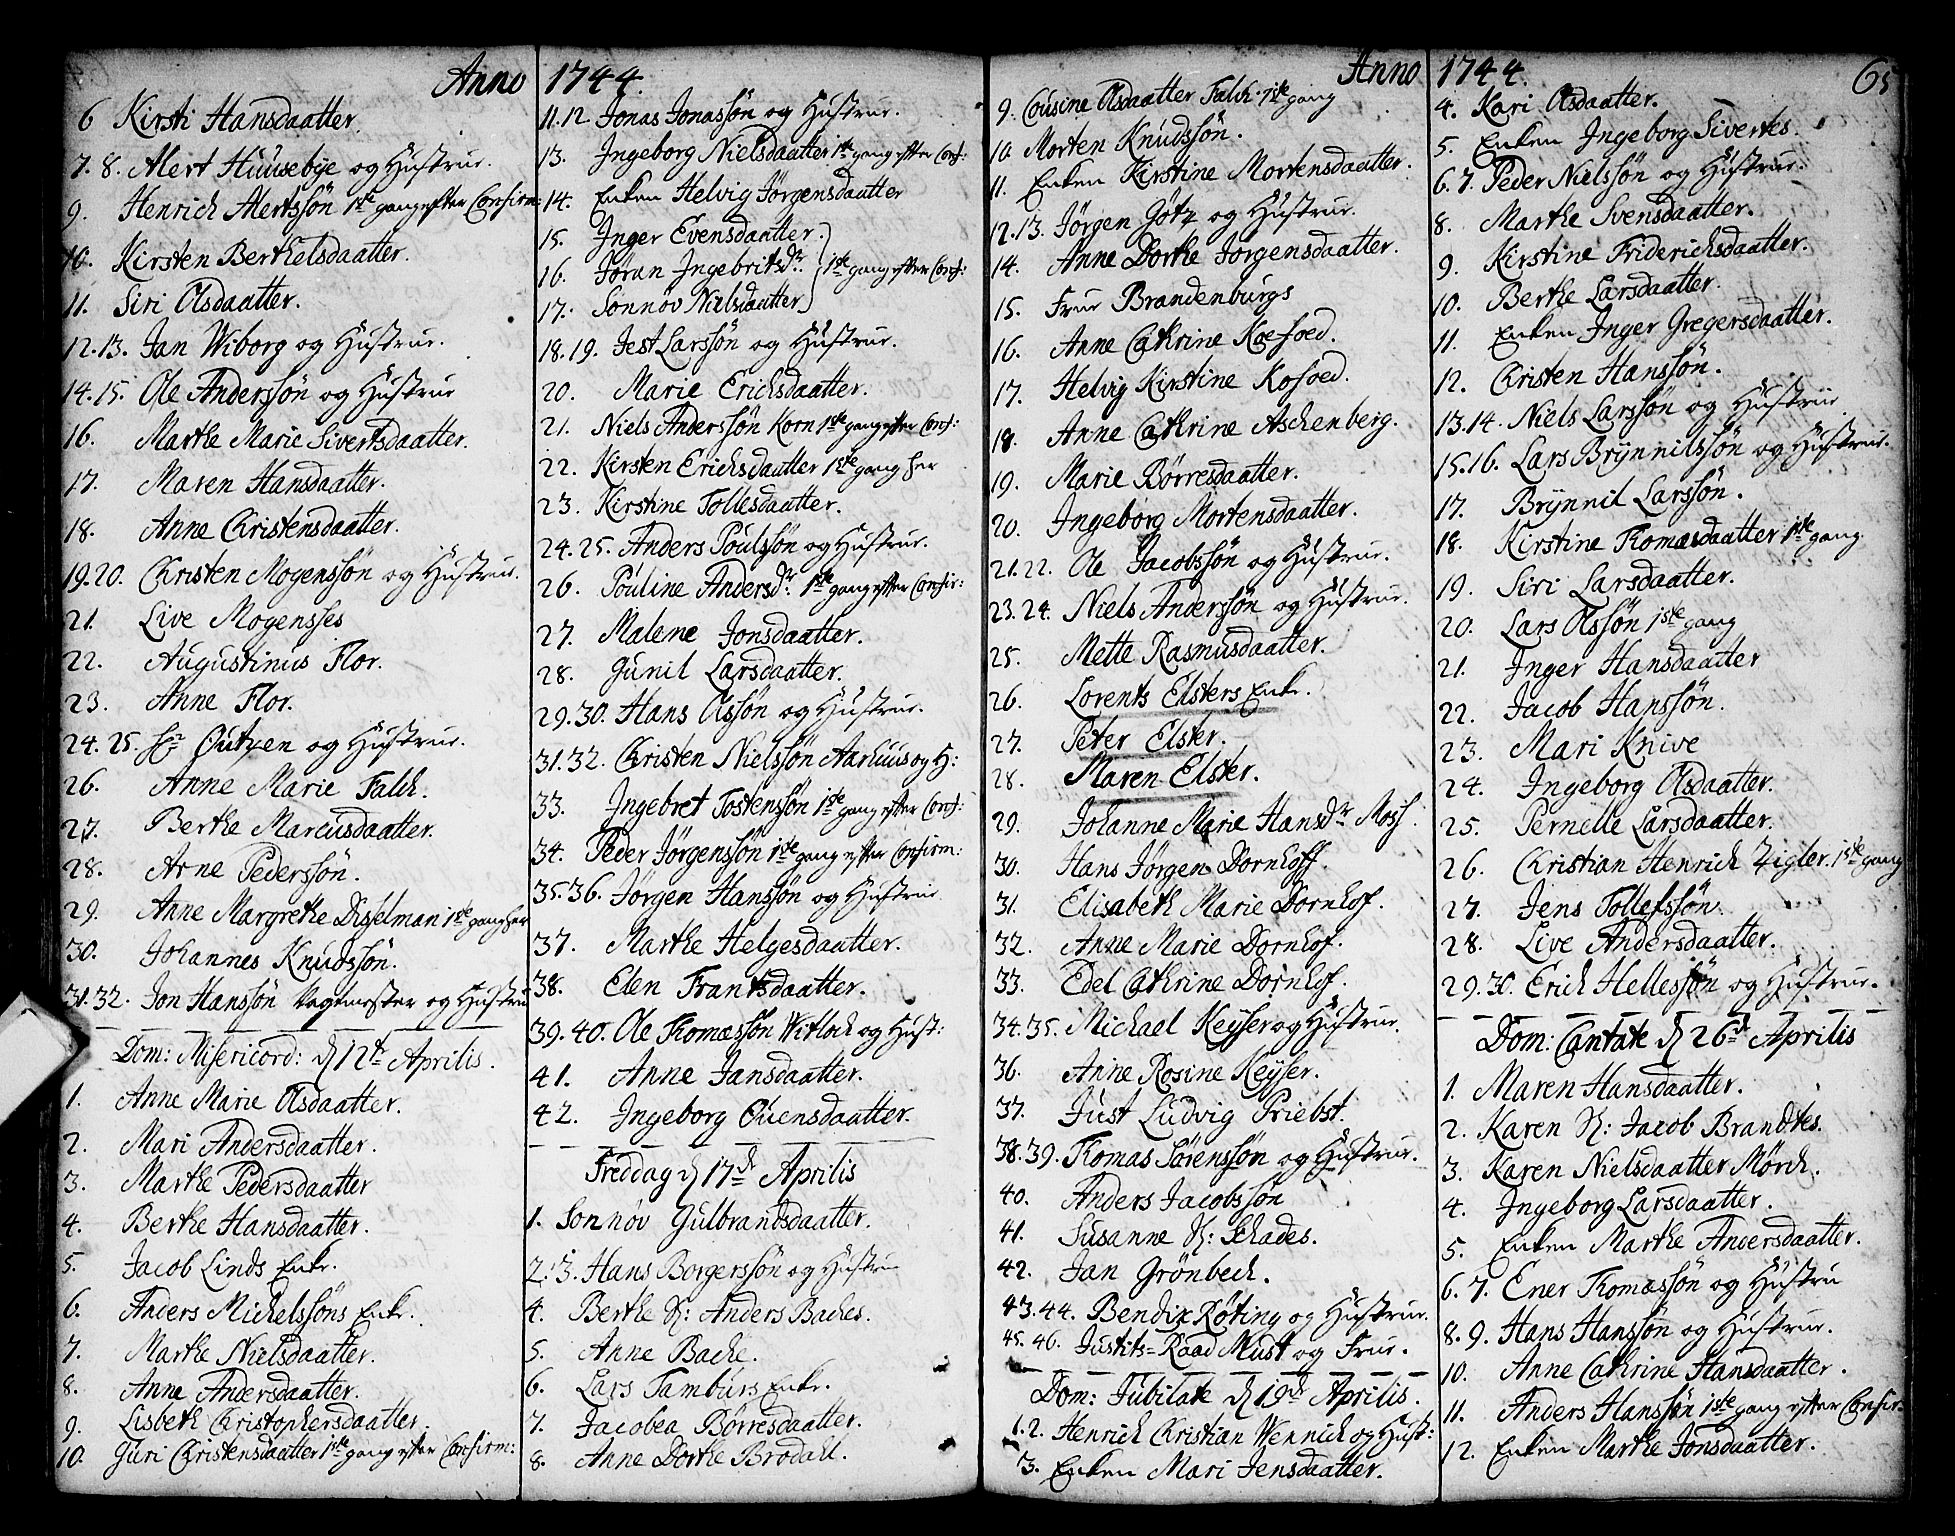 Anno 1744.
6 Kirsti Hansdaatter.
7. 8. Alert Huusebye og Hustrur.
9. Henrich Alertssön 1ste gang efter Confirm:
10. Kirsten Berthelsdaatter.
11. Siri Olsdaatter.
12. 13. Jan Wiborg og Hustrur.
14. 15. Ole Anderssön og Hustrur
16. Marthe Marie Sivertsdaatter.
17. Maren Hansdaatter.
18. Anne Christensdaatter.
19. 20. Christen Mogenssön og Hustrur.
21. Live Mogensses
22. Augustinus Flor.
23. Anne Flor.
24. 25. Hr Outzen og Hustrur.
26. Anne Marie Falch.
27. Berthe Marcusdaatter.
28. Arne Pederssön.
29. Anne Margrethe Disselman 1ste gang her
30. Johannes Knudssön.
31. 32. Jon Hanssön Vagtmester og Hustru
Dom: Misericord: d 12te Aprilis.
1. Anne Marie Olsdaatter.
2. Mari Andersdaatter.
3. Marthe Pedersdaatter
4. Berthe Hansdaatter.
5. Jacob Linds Enke.
6. Anders Michelssöns Enke.
7. Marthe Nielsdaatter.
8. Anne Andersdaatter.
9. Lisbeth Christophersdaatter.
10. Guri Christensdaatter 1ste gang efter Confirm:
11. 12. Jonas Jonassön og Hustrur.
13. Ingeborg Nielsdaatter 1ste gang efter Conf:
14. Enken Helvig Jörgensdaatter
15. Inger Evensdaatter.
16. Jöran Ingebritsdr. 1ste gang efter Conf:
17. Sönnöv Nielsdaatter
18. 19. Jest Larssön og Hustrur.
20. Marie Erichsdaatter.
21. Niels Anderssön Korn 1ste gang efter Conf:
22. Kirsten Erichsdaatter 1ste gang her
23. Kirstine Tollesdaatter.
24. 25. Anders Poulssön og Hustrur.
26. Pouline Andersdr. 1ste gang efter Confir:
27. Malene Jonsdaatter.
28. Gunil Larsdaatter.
29. 30. Hans Olssön og Hustrur.
31. 32. Christen Nielssön Aarhuus og H:
33. Ingebret Tostenssön 1ste gang efter Conf:
34. Peder Jörgenssön 1ste gang efter Confirm:
35. 36. Jörgen Hanssön og Hustrur
37. Marthe Helgesdaatter.
38. Elen Frantsdaatter.
39. 40. Ole Thomæssön Witloch og Hust:
41. Anne Jansdaatter.
42. Ingeborg Ouensdaatter.
Freddag d 17de Aprilis
1. Sönnöv Gulbrandsdaatter.
2. 3. Hans Borgerssön og Hustru
4. Berthe S: Anders Baches.
5. Anne Bache.
6. Lars Tamburs Enke.
7. Jacobea Börresdaatter.
8. Anne Dorthe Brodahl.
Anno 1744. 65
9. Cousine Olsdaatter Falch. 1ste gang
10. Morten Knudssön.
11. Enken Kirstine Mortensdaatter.
12. 13. Jörgen Götz og Hustrur.
14. Anne Dorthe Jörgensdaatter.
15. Frur Brandenburgs
16. Anne Cathrine Koefoed.
17. Helvig Kirstine Kofoed.
18. Anne Cathrine Aschenberg.
19. Marie Börresdaatter.
20. Ingeborg Mortensdaatter.
21. 22. Ole Jacobssön og Hustrur.
23. 24. Niels Anderssön og Hustrur.
25. Mette Rasmusdaatter.
26. Lorents Elsters Enke.
27. Peter Elster.
28. Maren Elster.
29. Johanne Marie Hansdr Moss.
30. Hans Jörgen Dornhoff.
31. Elisabeth Marie Dornhof.
32. Anne Marie Dornhof.
33. Edel Cathrine Dornhof.
34. 35. Michael Keyser og Hustrur.
36. Anne Rosine Keyser.
37. Just Ludvig Priebst.
38. 39. Thomas Sörenssön og Hustrur.
40. Anders Jacobssön
41. Susanne S: Schades.
42. Jan Grönbech.
43. 44. Bendix Röting og Hustrur.
45. 46. Justits=Raad Must og Frur.
Dom: Jubilate d 19de Aprilis.
1. 2. Henrich Christian Wennich og Hust:
3. Enken Mari Jensdaatter.
4. Kari Olsdaatter.
5. Enken Ingeborg Sivertes.
6. 7. Peder Nielssön og Hustrur.
8. Marthe Svensdaatter.
9. Kirstine Friderichsdaatter.
10. Berthe Larsdaatter.
11. Enken Inger Gregersdaatter.
12. Christen Hanssön.
13. 14. Niels Larssön og Hustrur
15. 16. Lars Brynnilssön og Hustrur.
17. Brynnil Larssön.
18. Kirstine Thomæsdaatter 1ste gang.
19. Siri Larsdaatter.
20. Lars Olssön 1ste gang
21. Inger Hansdaatter
22. Jacob Hanssön.
23. Mari Knive
24. Ingeborg Olsdaatter.
25. Pernelle Larsdaatter.
26. Christian Henrich Zigler. 1ste gang
27. Jens Tollefssön.
28. Live Andersdaatter.
29. 30. Erich Hellessön og Hustrur.
Dom: Cantate d 26de Aprilis
1. Maren Hansdaatter.
2. Karen S: Jacob Brandtes.
3. Karen Nielsdaatter Mörch.
4. Ingeborg Larsdaatter.
5. Enken Marthe Andersdaatter.
6. 7. Ener Thomæssön og Hustru
8. 9. Hans Hanssön og Hustrur.
10. Anne Cathrine Hansdaatter.
11. Anders Hanssön 1ste gang efter Confir:
12. Enken Marthe Jonsdaatter.